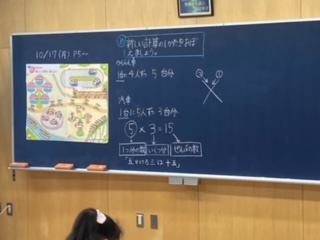 10/17(月) P5〜
新しい計算のしかたをおぼ
えましょう。
かんらん車
1台に4人ずつ 5台分
汽車
1台に5人ずつ 3台分
5×3=15
1つ分の数 いくつ分 ぜんぶの数
「五かける三は十五」